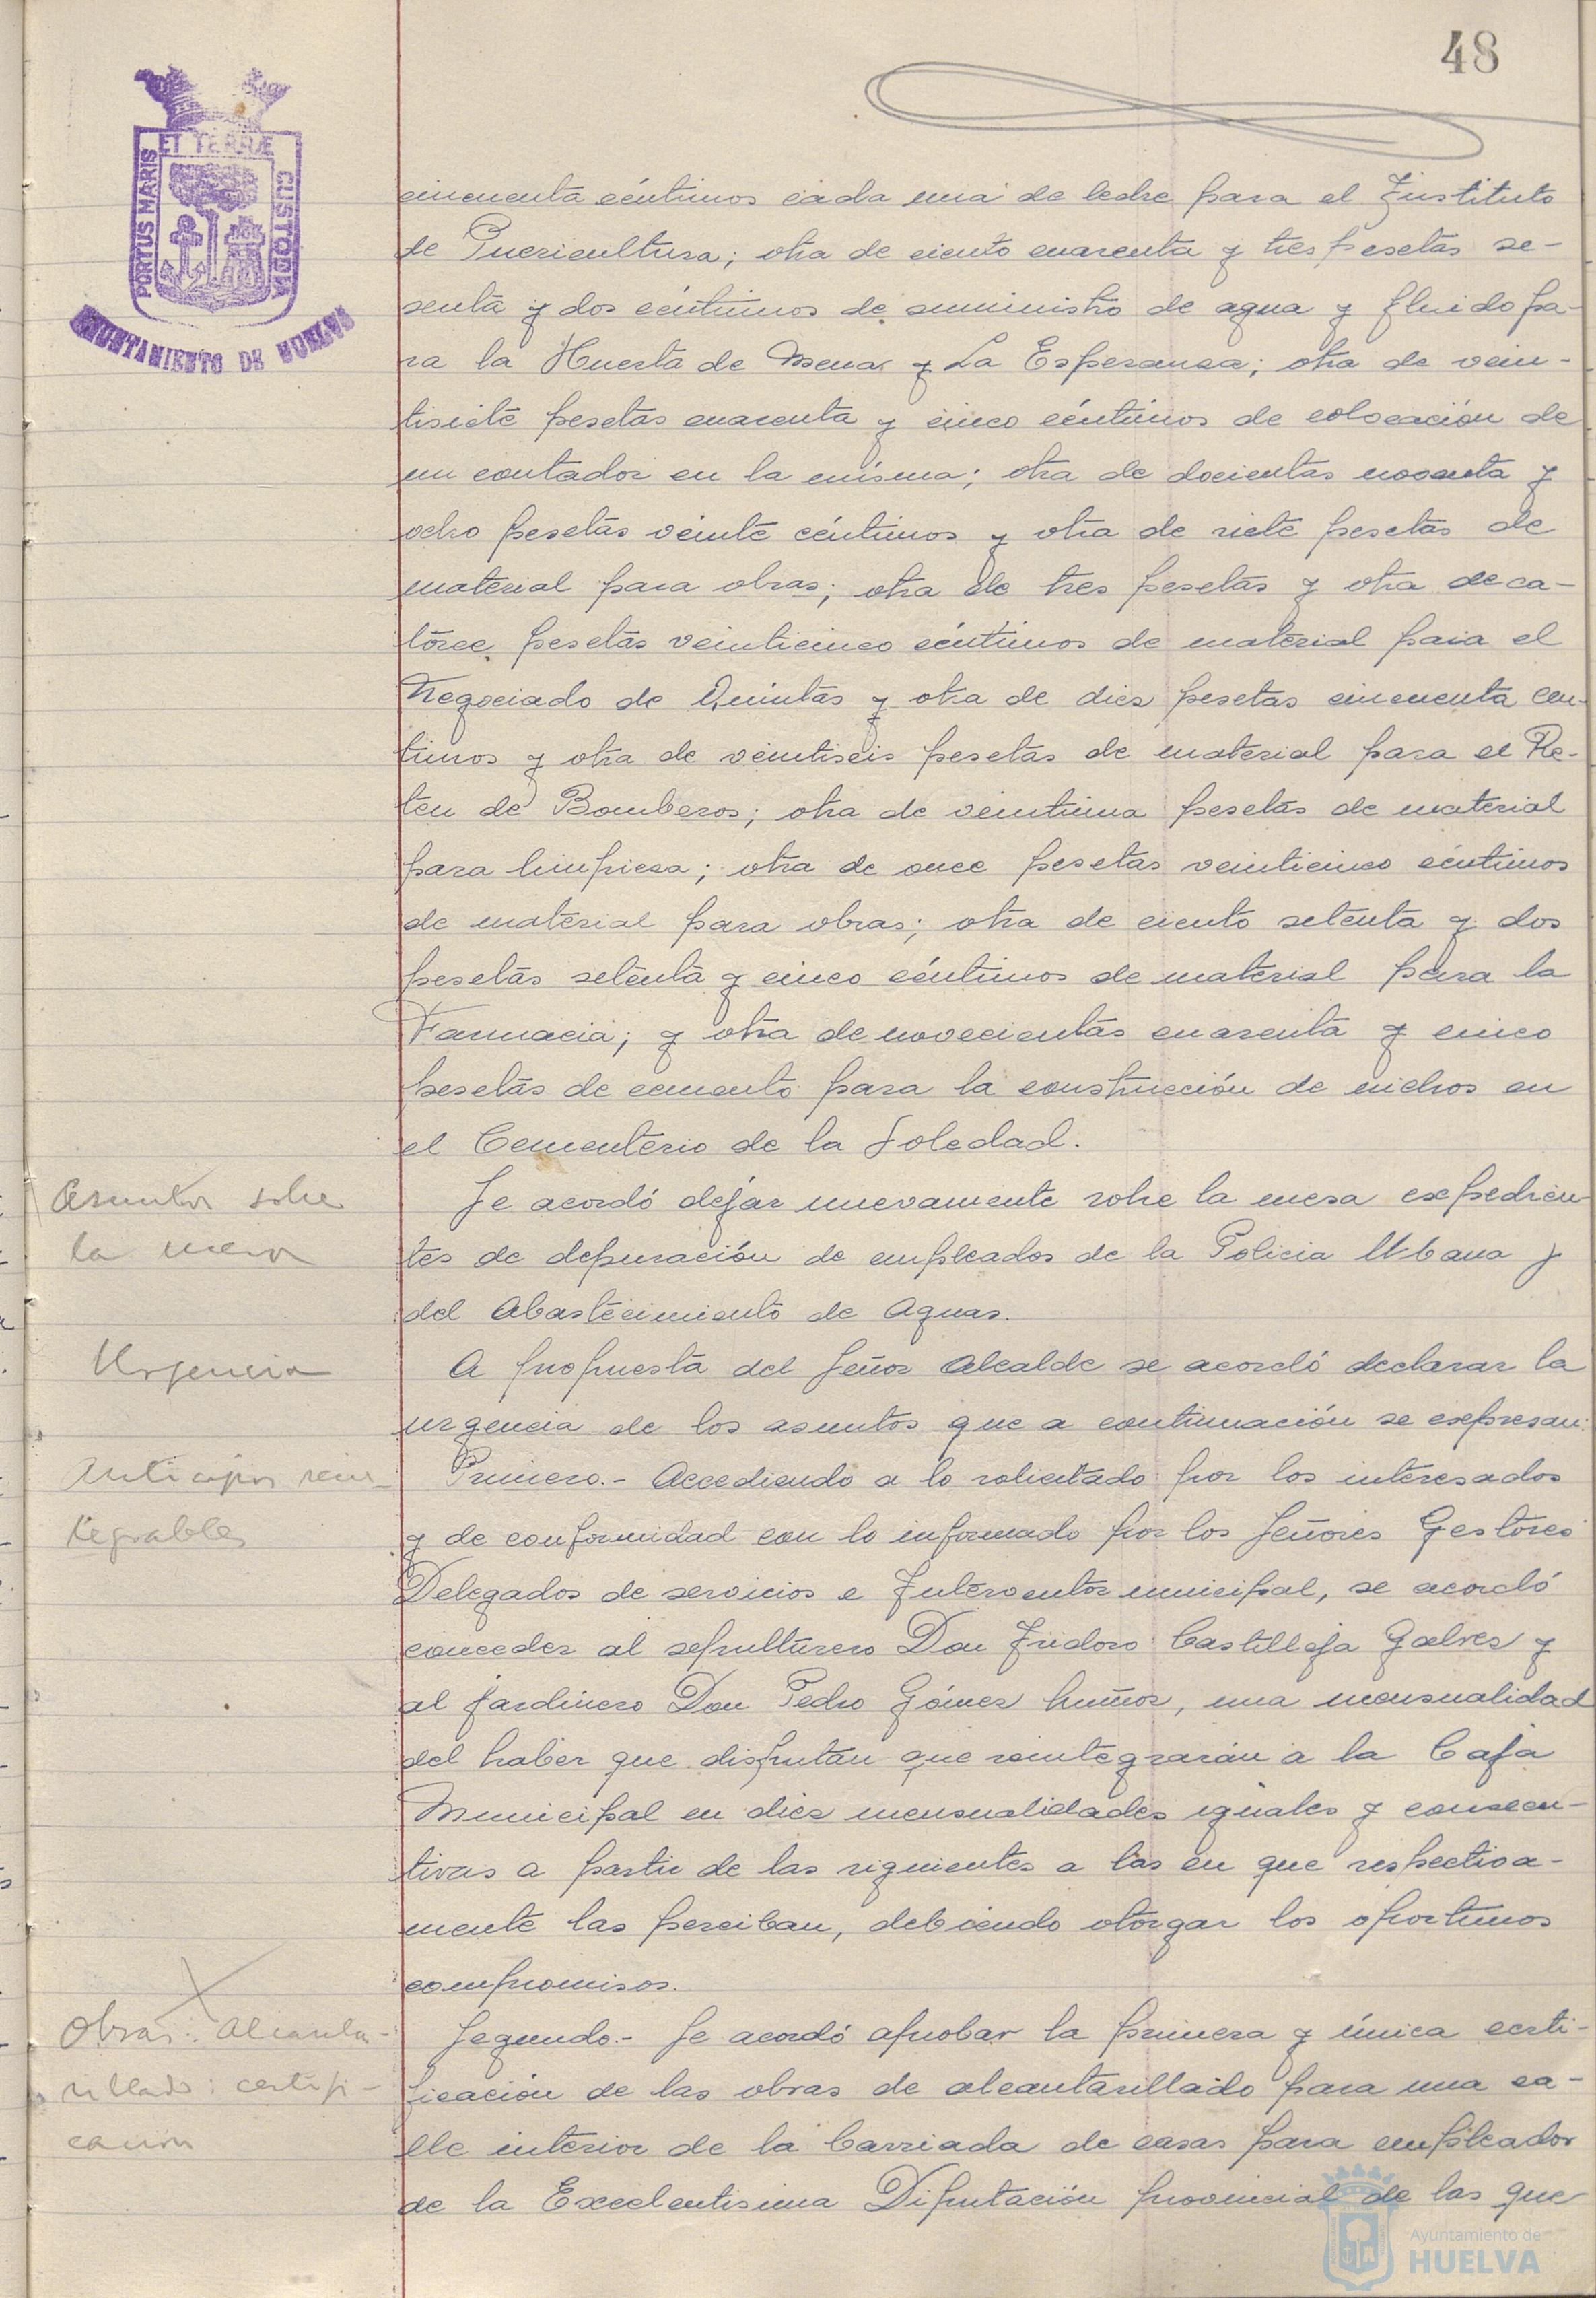 48
PORTUS MARIS
ET TERRE
CUSTODIA
AYUNTAMIENTO DE HUELVA
cincuenta céntimos cada una de leche para el Instituto
de Puericultura; otra de ciento cuarenta y tres pesetas se-
senta y dos céntimos de suministro de agua y fluido pa-
ra la Huerta de Mena y La Esperanza; otra de vein-
tisiete pesetas cuarenta y cinco céntimos de colocación de
un contador en la misma; otra de docientas noventa y
ocho pesetas veinte céntimos y otra de siete pesetas de
material para obras; otra de tres pesetas y otra de ca-
torce pesetas veinticinco céntimos de material para el
Negociado de Quintas y otra de diez pesetas cincuenta cen-
timos y otra de veintiseis pesetas de material para el Re-
ten de Bomberos; otra de veintiuna pesetas de material
para limpieza; otra de once pesetas veinticinco céntimos
de material para obras; otra de ciento setenta y dos
pesetas setenta y cinco céntimos de material para la
Farmacia; y otra de novecientas cuarenta y cinco
pesetas de cemento para la construcción de nichos en
el Cementerio de la Soledad.
Asuntos sobre
la mesa
Se acordó dejar nuevamente sobre la mesa expedien-
tes de depuración de empleados de la Policia Urbana y
del Abastecimiento de Aguas.
Urgencia
A propuesta del Señor Alcalde se acordó declarar la
urgencia de los asuntos que a continuación se expresan:
Anticipos rein-
tegrables
Primero.- Accediendo a lo solicitado por los interesados
y de conformidad con lo informado por los Señores Gestores
Delegados de servicios e Interventor municipal, se acordó
conceder al sepulturero Don Isidoro Castilleja Galvez y
al jardinero Don Pedro Gómez Muñoz, una mensualidad
del haber que disfrutan que reintegrarán a la Caja
Municipal en diez mensualidades iguales y consecu-
tivas a partir de las siguientes a las en que respectiva-
mente las perciban, debiendo otorgar los oportunos
compromisos.
Obras: Alcanta-
rillado: certifi-
cación
Segundo.- Se acordó aprobar la primera y única certi-
ficación de las obras de alcantarillado para una ca-
lle interior de la barriada de casas para empleados
de la Excelentisima Diputación provincial de las que
Ayuntamiento de
HUELVA